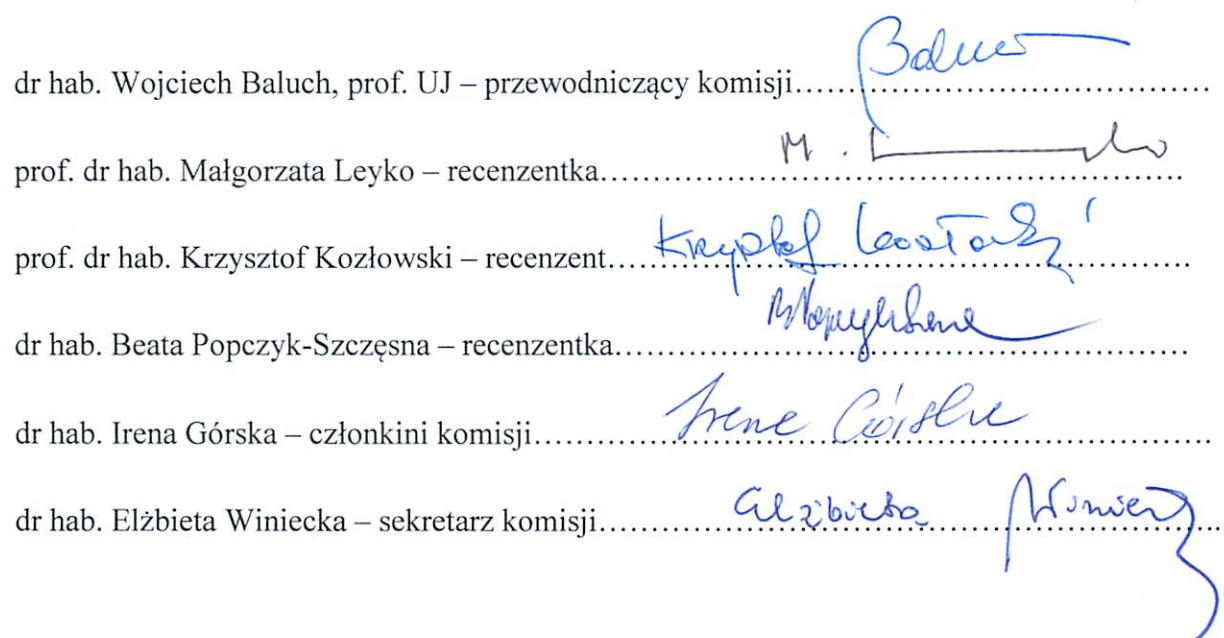 dr hab. Wojciech Baluch, prof. UJ – przewodniczący komisji……………………………………
prof. dr hab. Małgorzata Leyko – recenzentka…………………………………………………….
prof. dr hab. Krzysztof Kozłowski – recenzent…………………………………………………….
dr hab. Beata Popczyk-Szczęsna – recenzentka…………………………………………………….
dr hab. Irena Górska – członkini komisji………………………………………………………….
dr hab. Elżbieta Winiecka – sekretarz komisji…………………………………………………….